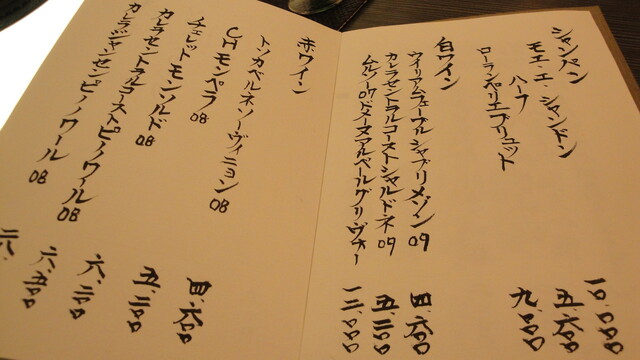 シャンパン
モエ・エ・シャンドン 一〇.〇〇〇
ハーフ 五.六〇〇
ローランペリエブリュット 九.〇〇〇
白ワイン
ウイリアムフェーブルシャブリメゾン09 四.六〇〇
カレラセントラルコーストシャルドネ09 五.二〇〇
ムルソー07ドメーヌアルベールグリヴォー 一二.〇〇〇
赤ワイン
トソカベルネソーヴィニヨン08 四.六〇〇
CHモンペラ08 五.二〇〇
チェレットモンソルド08 六.二〇〇
カレラセントラルコーストピノノワール08 六.五〇〇
カレラジャンセンピノノワール08